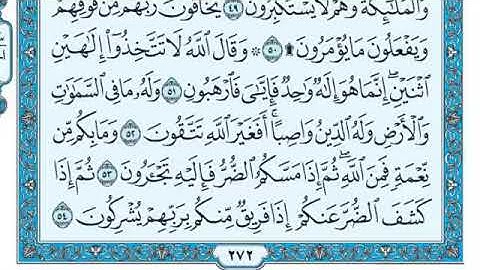 وَالْمَلَٰٓئِكَةُ وَهُمْ لَا يَسْتَكْبِرُونَ ٤٩ يَخَافُونَ رَبَّهُم مِّن فَوْقِهِمْ
وَيَفْعَلُونَ مَا يُؤْمَرُونَ ۩ ٥٠ ۞ وَقَالَ اللَّهُ لَا تَتَّخِذُوٓا۟ إِلَٰهَيْنِ
اثْنَيْنِ ۖ إِنَّمَا هُوَ إِلَٰهٌ وَٰحِدٌ فَإِيَّٰىَ فَارْهَبُونِ ٥١ وَلَهُۥ مَا فِى السَّمَٰوَٰتِ
وَالْأَرْضِ وَلَهُ الدِّينُ وَاصِبًا ۚ أَفَغَيْرَ اللَّهِ تَتَّقُونَ ٥٢ وَمَا بِكُم مِّن
نِّعْمَةٍ فَمِنَ اللَّهِ ۖ ثُمَّ إِذَا مَسَّكُمُ الضُّرُّ فَإِلَيْهِ تَجْـَٔرُونَ ٥٣ ثُمَّ إِذَا
كَشَفَ الضُّرَّ عَنكُمْ إِذَا فَرِيقٌ مِّنكُم بِرَبِّهِمْ يُشْرِكُونَ ٥٤
٢٧٢